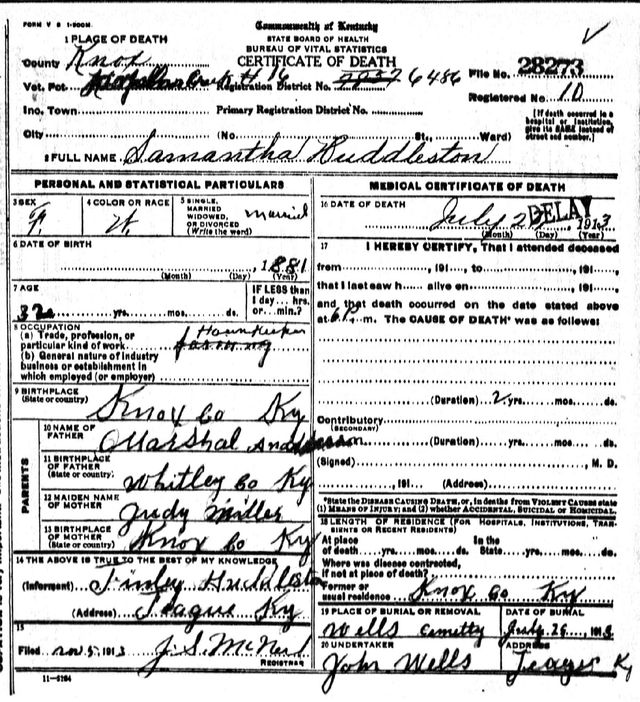 FORM V S 1-500M.
Commonwealth of Kentucky
STATE BOARD OF HEALTH
BUREAU OF VITAL STATISTICS
CERTIFICATE OF DEATH
1 PLACE OF DEATH
County Knox
Vot. Pct. # 16 Registration District No. 6486
File No. 28273
Registered No. 10
Inc. Town Primary Registration District No.
[If death occurred in a hospital or institution, give its NAME instead of street and number.]
City (No. St., Ward)
2 FULL NAME Samantha Huddleston
PERSONAL AND STATISTICAL PARTICULARS
3 SEX F
4 COLOR OR RACE W
5 SINGLE, MARRIED WIDOWED, OR DIVORCED (Write the word) Married
6 DATE OF BIRTH
, 1881
(Month) (Day) (Year)
7 AGE
32 yrs. mos. ds.
IF LESS than 1 day... hrs. or min.?
8 OCCUPATION
(a) Trade, profession, or particular kind of work Housekeeper
(b) General nature of industry business or establishment in which employed (or employer)
9 BIRTHPLACE (State or country) Knox Co Ky
PARENTS
10 NAME OF FATHER Marshal
11 BIRTHPLACE OF FATHER (State or country) Whitley Co Ky
12 MAIDEN NAME OF MOTHER Judy Miller
13 BIRTHPLACE OF MOTHER (State or country) Knox Co Ky
14 THE ABOVE IS TRUE TO THE BEST OF MY KNOWLEDGE
(Informant) Finley Huddleston
(Address) Ky
15
Filed Nov 5, 1913 J. S. McNeil
REGISTRAR
11-5184
MEDICAL CERTIFICATE OF DEATH
16 DATE OF DEATH
July , 1913
DELAY
(Month) (Day) (Year)
17 I HEREBY CERTIFY, That I attended deceased
from , 191 , to , 191 ,
that I last saw h alive on , 191 ,
and that death occurred on the date stated above
at 6 P. m. The CAUSE OF DEATH* was as follows:
(Duration) 2 yrs. mos. ds.
Contributory (SECONDARY)
(Duration) yrs. mos. ds.
(Signed) , M. D.
, 191 (Address)
*State the DISEASE CAUSING DEATH, or, in deaths from VIOLENT CAUSES state (1) MEANS OF INJURY; and (2) whether ACCIDENTAL, SUICIDAL or HOMICIDAL.
18 LENGTH OF RESIDENCE (FOR HOSPITALS, INSTITUTIONS, TRANSIENTS OR RECENT RESIDENTS)
At place of death yrs. mos. ds. In the State yrs. mos. ds.
Where was disease contracted, if not at place of death?
Former or usual residence Knox Co Ky
19 PLACE OF BURIAL OR REMOVAL
Wells
DATE OF BURIAL
July , 1913
20 UNDERTAKER
John Wells
ADDRESS
Ky